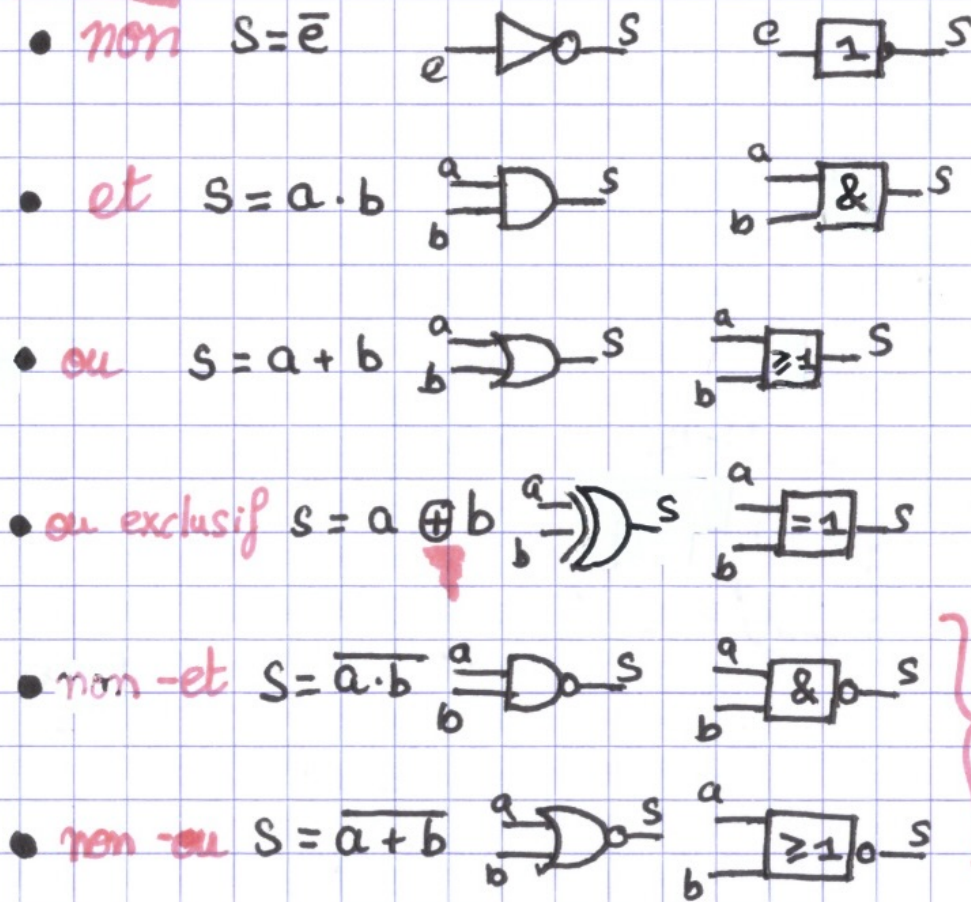 • non S = e̅ e S e 1 S
• et S = a · b a b S a b & S
• ou S = a + b a b S a b ⩾1 S
• ou exclusif S = a ⊕ b a b S a b =1 S
• non-et S = a̅·̅b̅ a b S a b & S
• non-ou S = a̅+̅b̅ a b S a b ⩾1 S